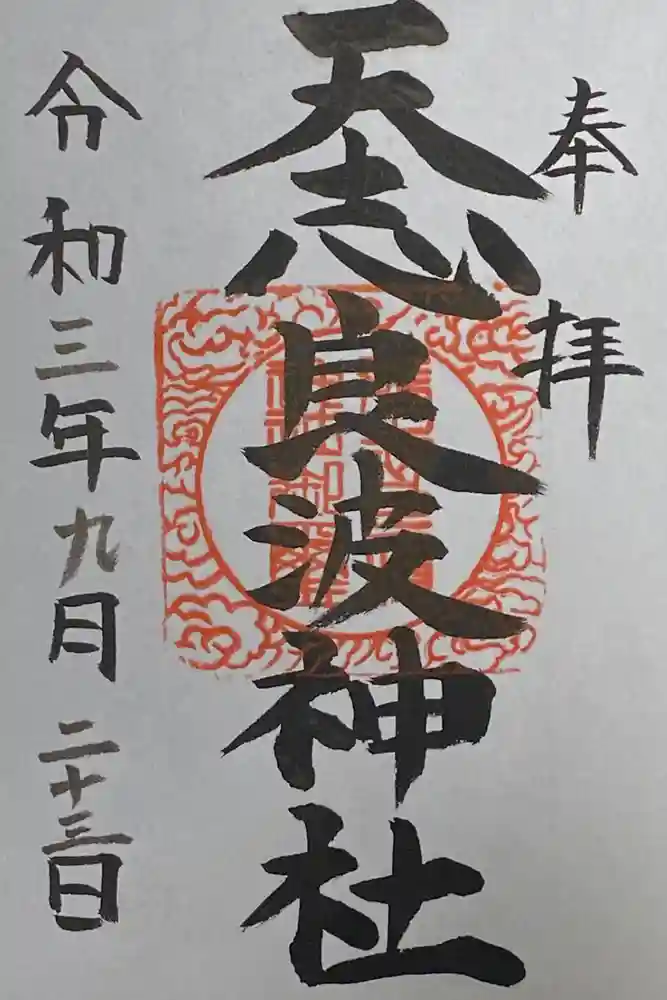 奉拝
天志良波神社
令和三年九月二十三日